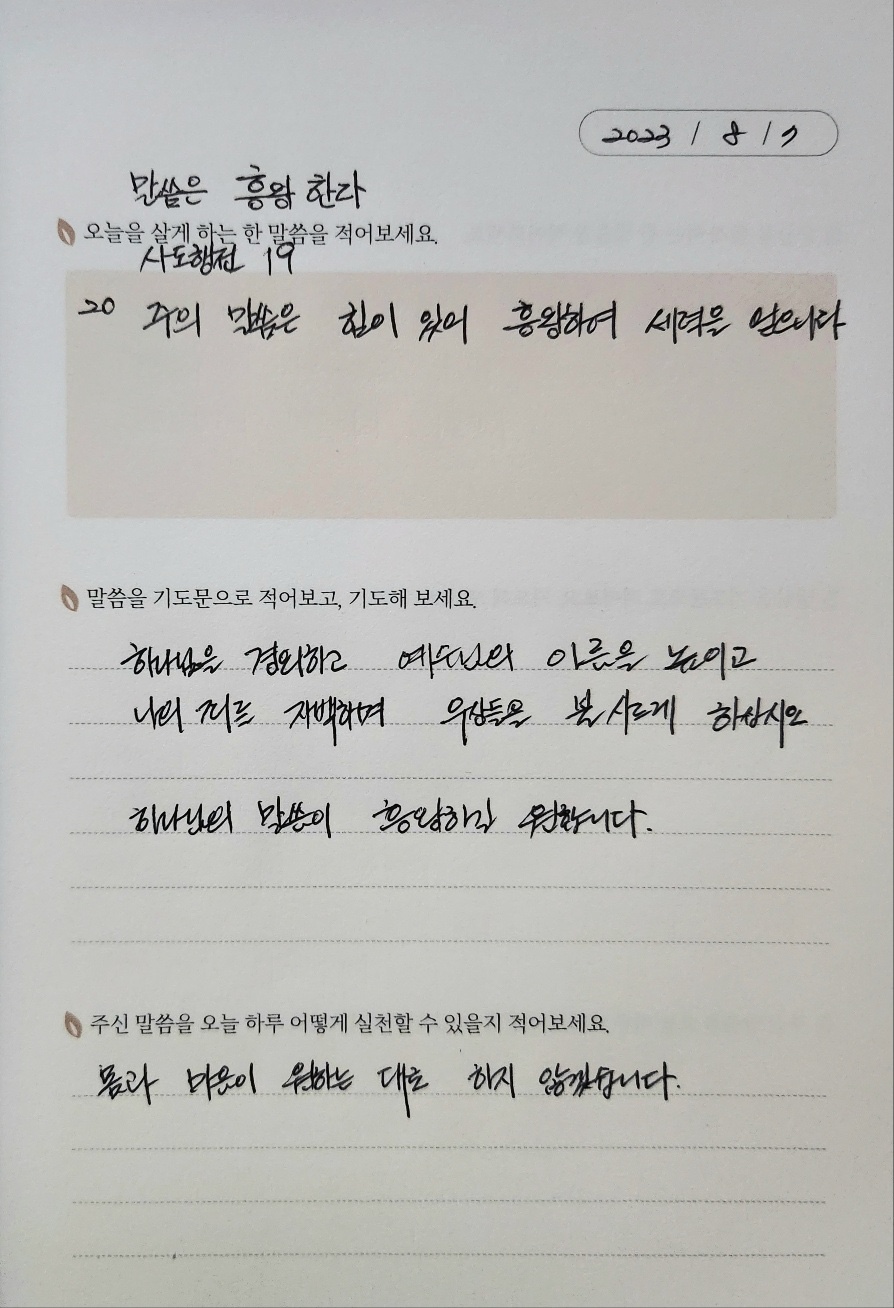 2023 / 8 / 7
말씀은 흥왕한다
오늘을 살게 하는 한 말씀을 적어보세요.
사도행전 19
20 주의 말씀은 힘이 있어 흥왕하여 세력을 얻으니라
말씀을 기도문으로 적어보고, 기도해 보세요.
하나님을 경외하고 예수님의 이름을 높이고
나의 죄를 자백하며 우상들을 불사르게 하십시오
하나님의 말씀이 흥왕하길 원합니다.
주신 말씀을 오늘 하루 어떻게 실천할 수 있을지 적어보세요.
몸과 마음이 원하는 대로 하지 않겠습니다.